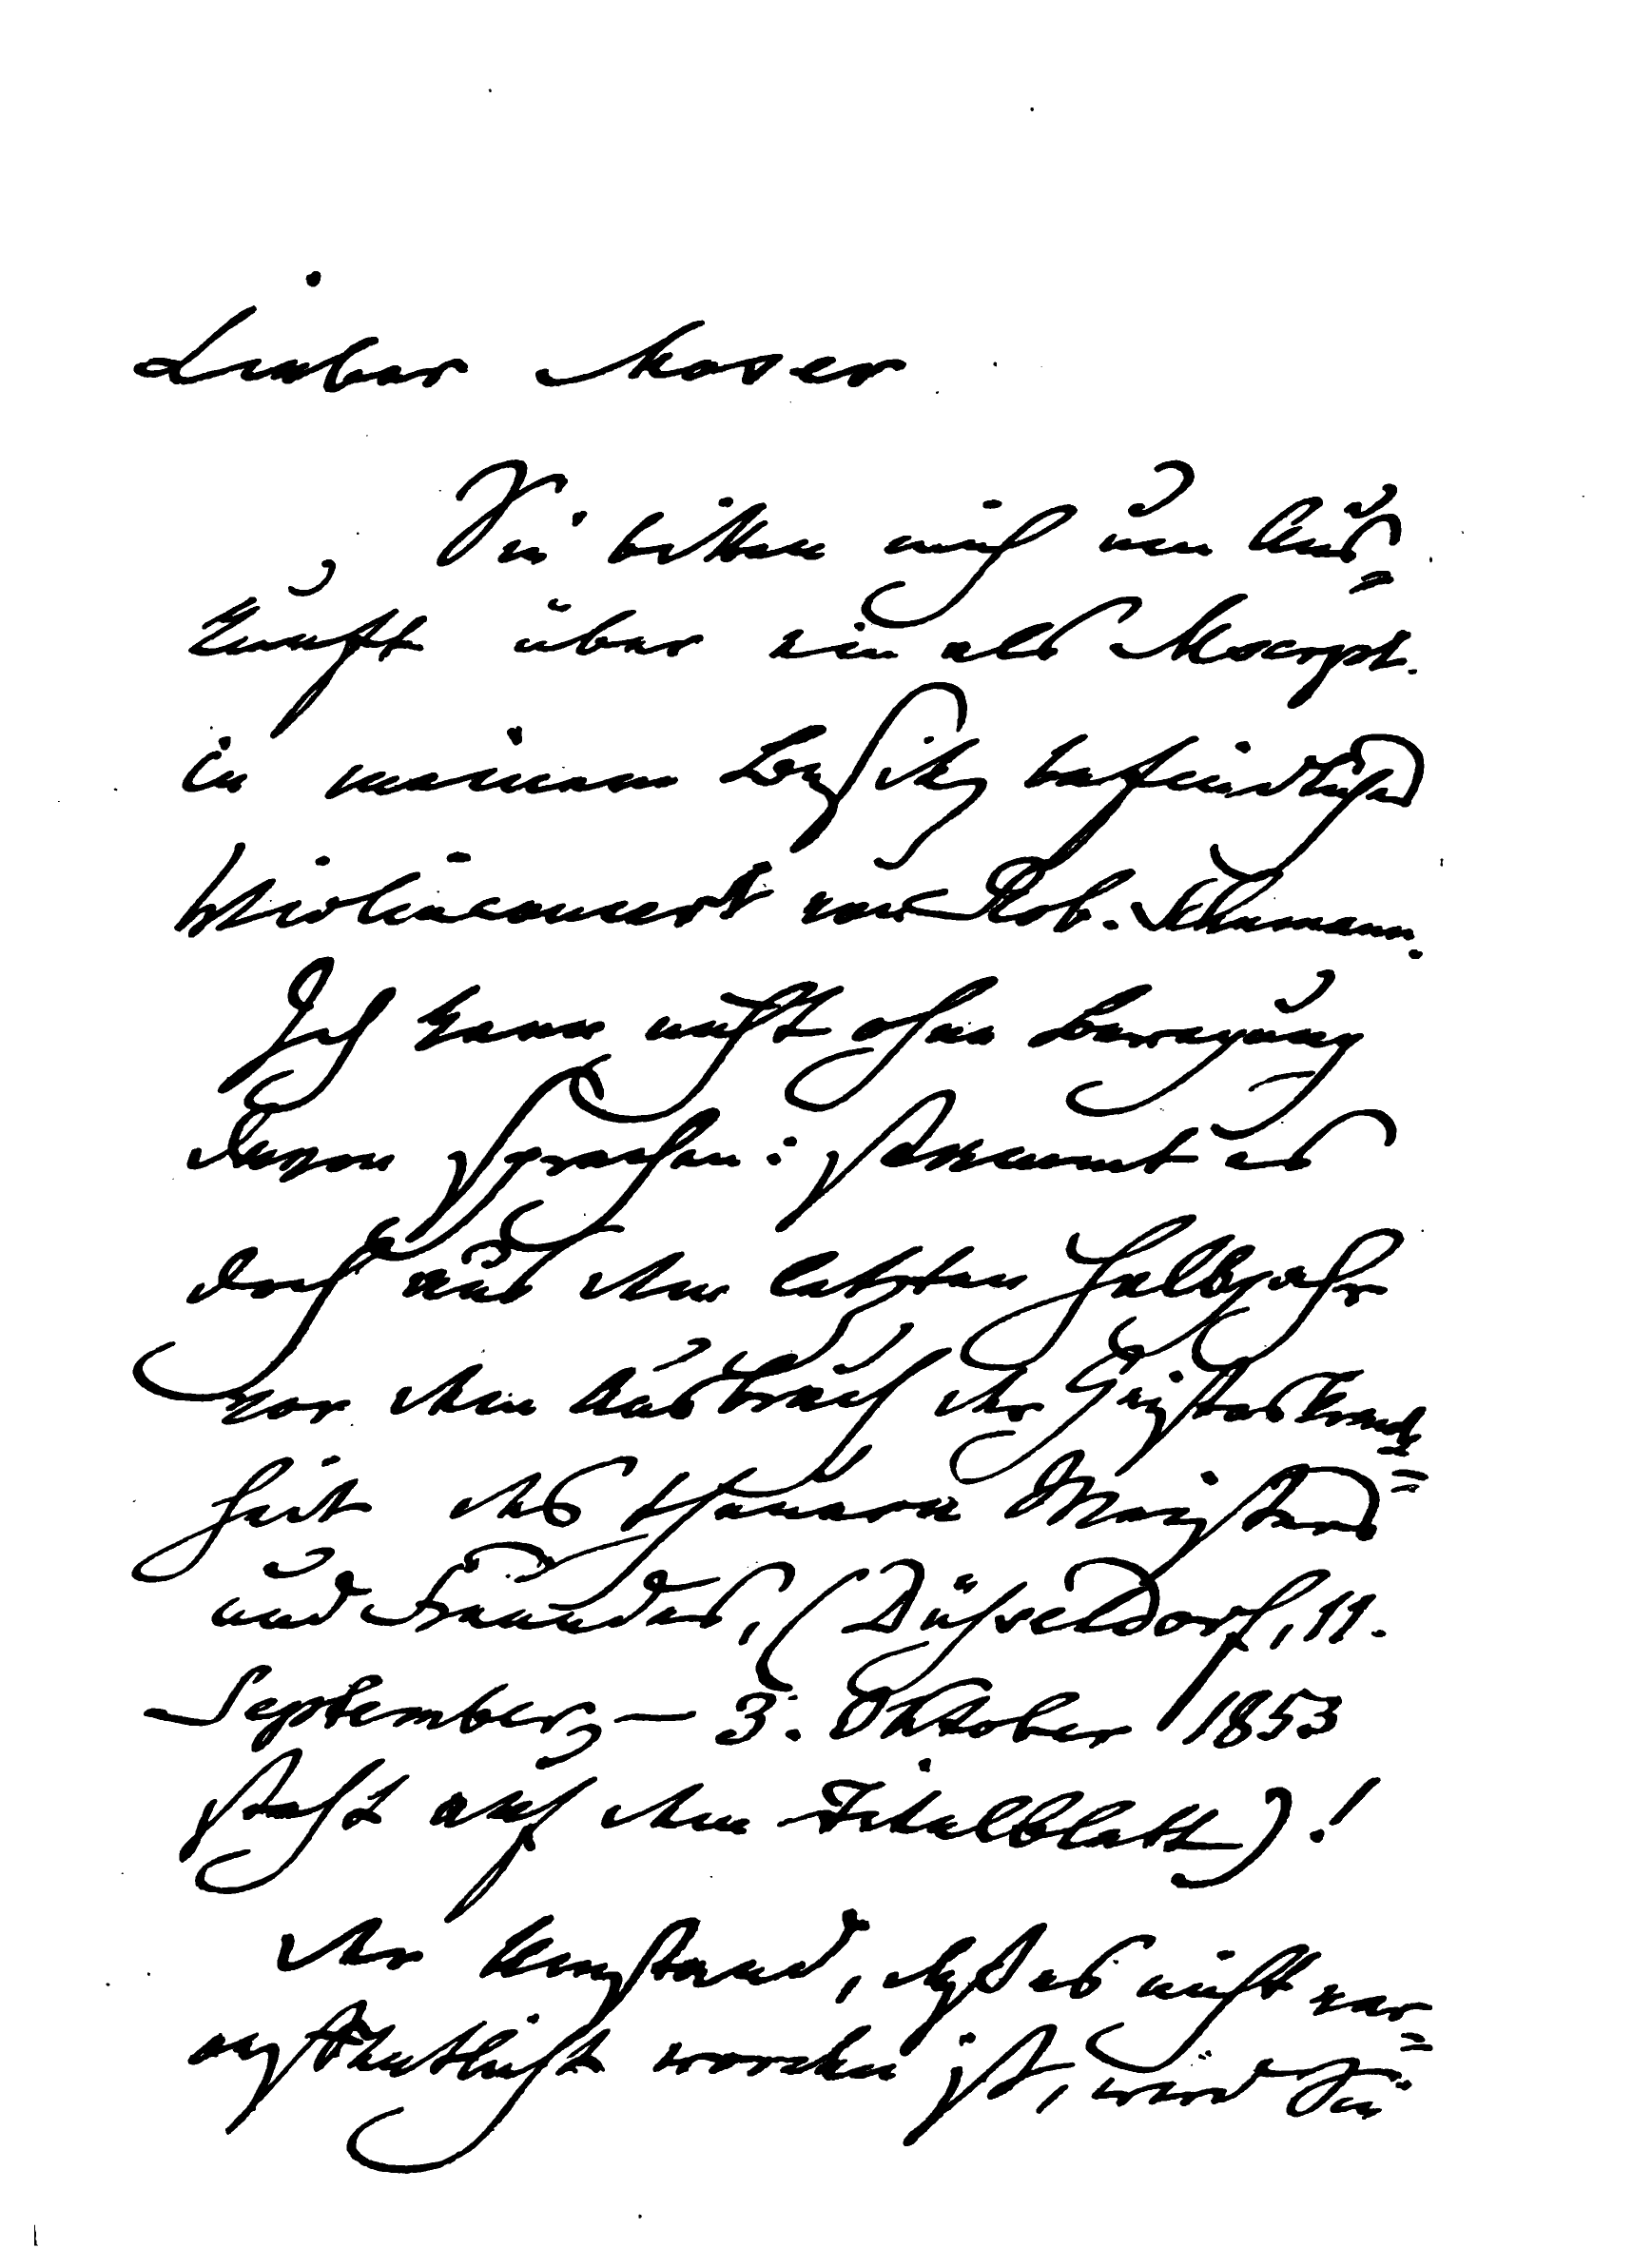 Lieber Moser
Sie bitten mich um Aus=
kunft über ein als Mscrpt.
in meinem Besitz befindliches
Violinconcert von Rob. Schumann.
Ich kann nicht ohne Bewegung
davon sprechen: stammt es
doch aus dem letzten Halbjahr
vor dem Ausbruch der Geisteskrank=
heit des theueren Meisters
und Freundes, (Düsseldorf, 11.
September, – 3. Oktober 1853
steht auf dem Titelblatt)!
Der Umstand, daß es nicht ver=
öffentlicht worden ist, wird Sie